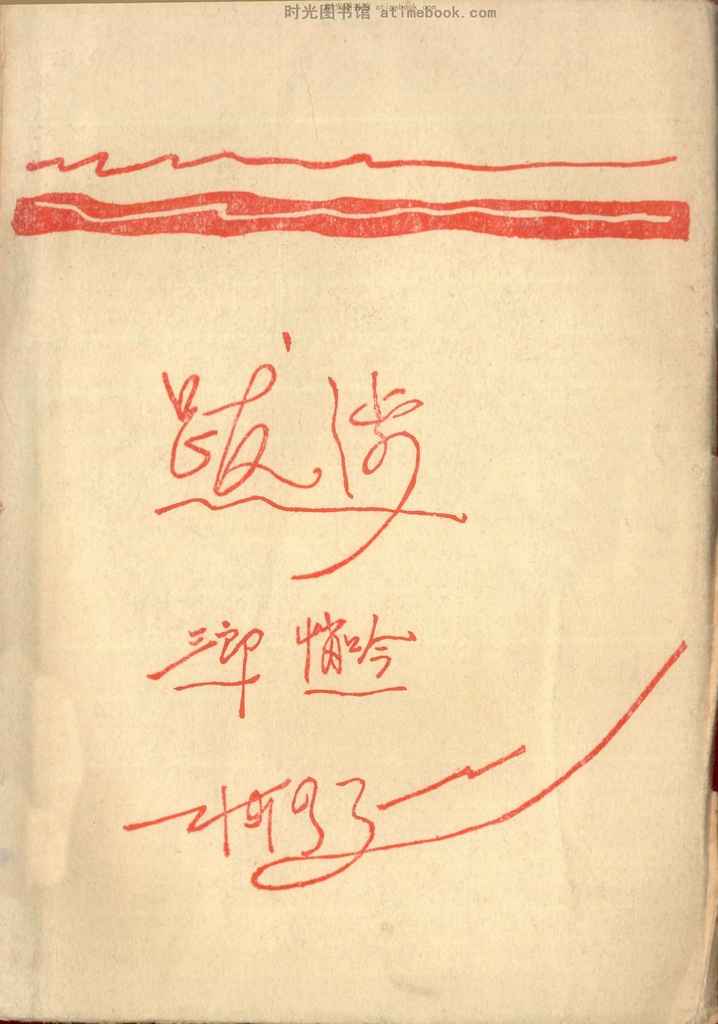 时光图书馆 atimebook.com
跋涉
三郎 悄吟
1933